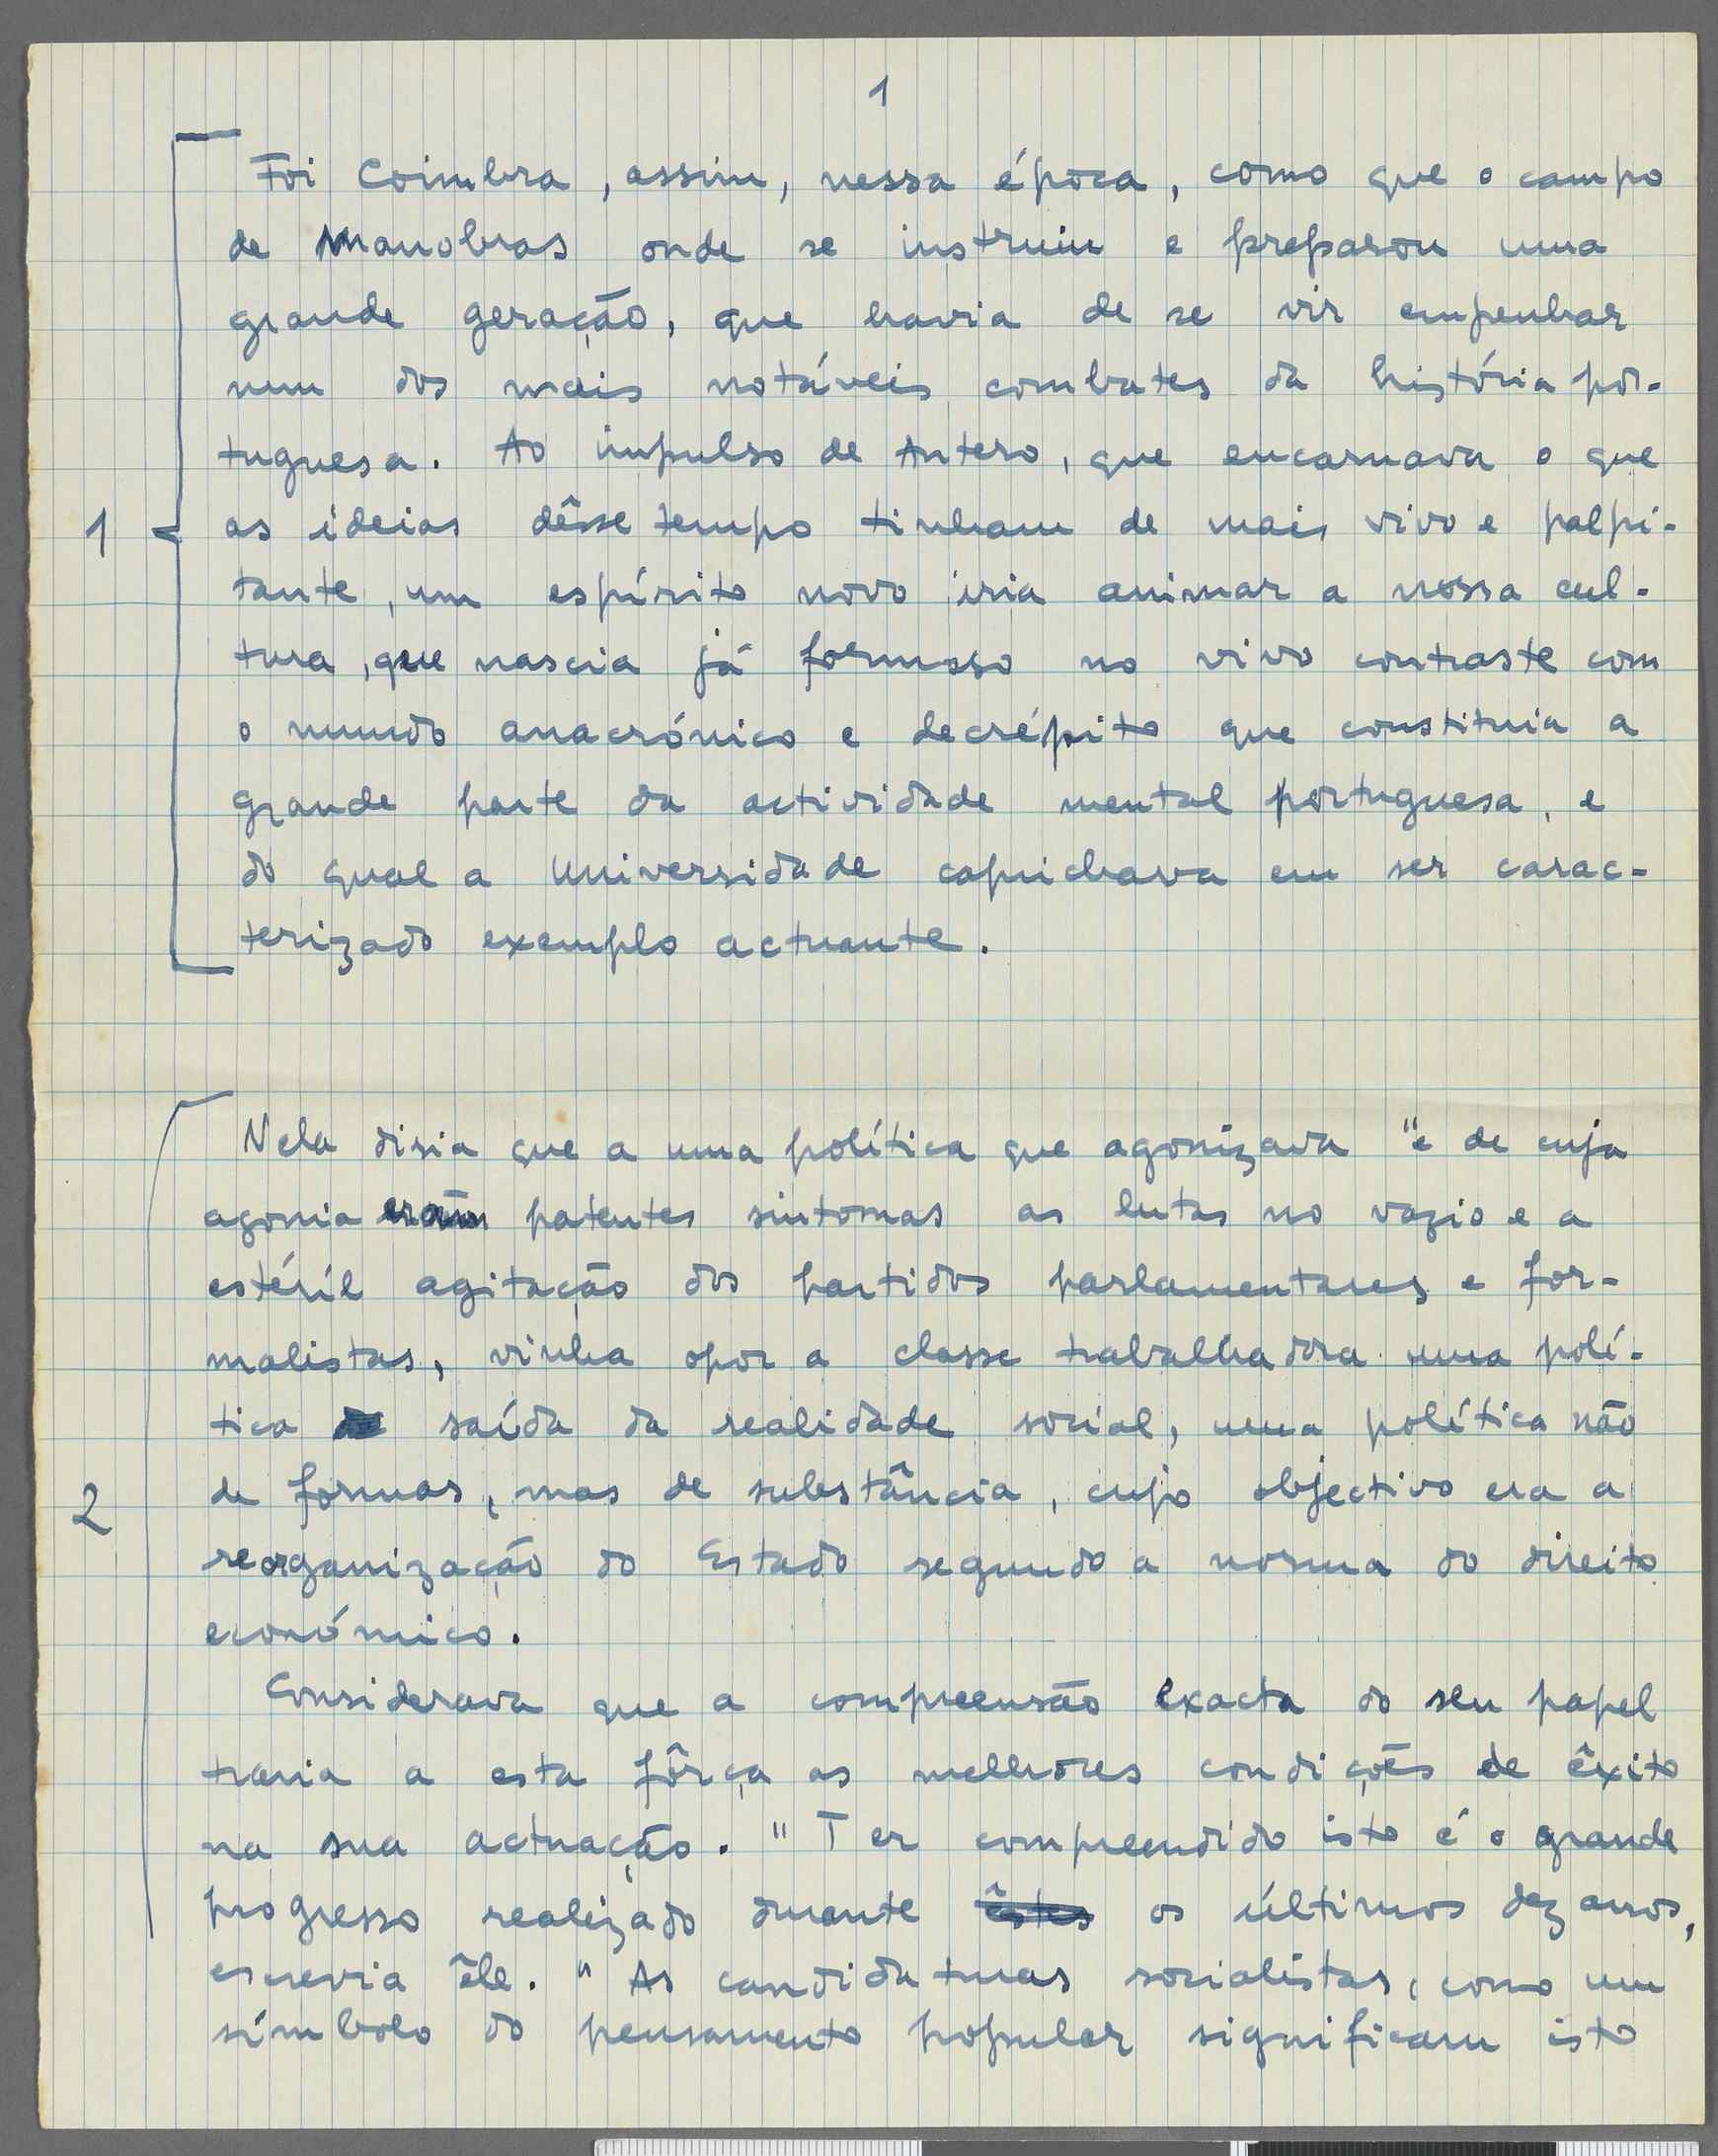 1
Foi Coimbra, assim, nessa época, como que o campo
de manobras onde se instruiu e preparou uma
grande geração, que havia de se vir empenhar
num dos mais notáveis combates da história por-
tuguesa. Ao impulso de Antero, que encarnava o que
as ideias dêsse tempo tinham de mais vivo e palpi-
1
tante, um espírito novo iria animar a nossa cul-
tura, que nascia já formoso no vivo contraste com
o mundo anacrónico e decrépito que constituia a
grande parte da actividade mental portuguesa, e
do qual a Universidade caprichava em ser carac-
terizado exemplo actuante.
Nela disia que a uma política que agonizava "e de cuja
agonia eram patentes sintomas as lutas no vazio e a
estéril agitação dos partidos parlamentares e for-
malistas, vinha opor a classe trabalhadora uma polí-
tica saída da realidade social, uma política não
2
de formas, mas de substância, cujo objectivo era a
reorganização do Estado segundo a norma do direito
económico.
Considerava que a compreensão exacta do seu papel
traria a esta fôrça as melhores condições de êxito
na sua actuação. "Ter compreendido isto é o grande
progresso realizado durante êstes os últimos dez anos,
escrevia êle. "As candidaturas socialistas, como um
símbolo do pensamento popular significam isto